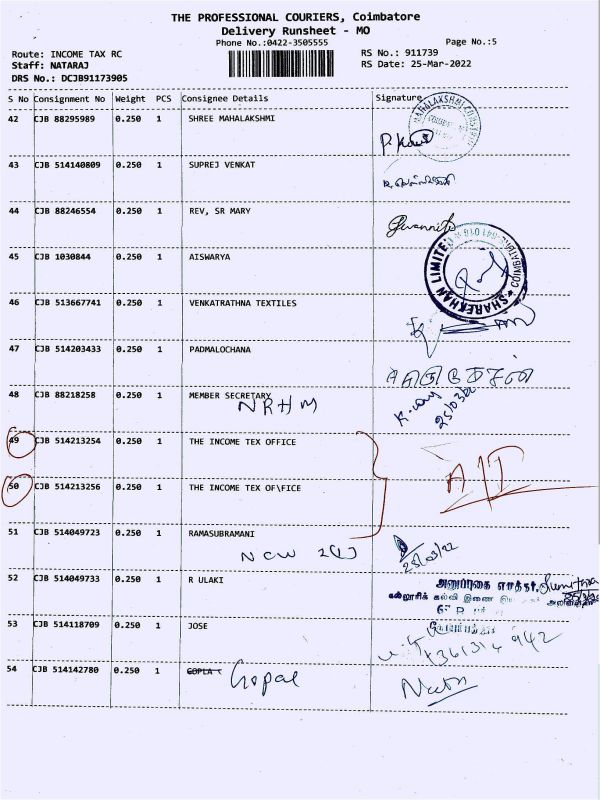 THE PROFESSIONAL COURIERS, Coimbatore
Delivery Runsheet - MO
Phone No.:0422-3505555
Page No.:5
Route: INCOME TAX RC
RS No.: 911739
Staff: NATARAJ
RS Date: 25-Mar-2022
DRS No.: DCJB91173905
S No Consignment No Weight PCS Consignee Details Signature
42 CJB 88295989 0.250 1 SHREE MAHALAKSHMI
43 CJB 514140809 0.250 1 SUPREJ VENKAT
44 CJB 88246554 0.250 1 REV, SR MARY
45 CJB 1030844 0.250 1 AISWARYA
SHAREKHAN LIMITED
46 CJB 513667741 0.250 1 VENKATRATHNA TEXTILES
47 CJB 514203433 0.250 1 PADMALOCHANA
48 CJB 88218258 0.250 1 MEMBER SECRETARY
NRHM
49 CJB 514213254 0.250 1 THE INCOME TEX OFFICE
50 CJB 514213256 0.250 1 THE INCOME TEX OF\FICE
51 CJB 514049723 0.250 1 RAMASUBRAMANI
25/03/22
52 CJB 514049733 0.250 1 R ULAKI
53 CJB 514118709 0.250 1 JOSE
54 CJB 514142780 0.250 1 GOPLA Gopal